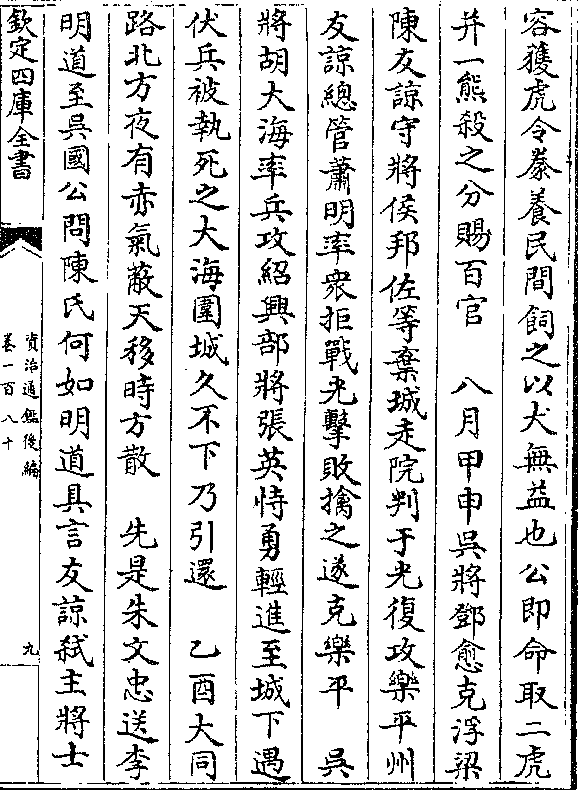 容獲虎令豢養民間飼之以犬無益也公即命取二虎
并一熊殺之分賜百官　八月甲申吳將鄧愈克浮梁
陳友諒守將侯邦佐等棄城走院判于光復攻樂平州
友諒總管蕭明率衆拒戰光擊敗擒之遂克樂平　吳
將胡大海率兵攻紹興部將張英恃勇輕進至城下遇
伏兵被執死之大海圍城久不下乃引還　乙酉大同
路北方夜有赤氣蔽天移時方散　先是朱文忠送李
明道至吳國公問陳氏何如明道具言友諒弑主將士
欽定四庫全書
資治通鑑後編
卷一百八十
九